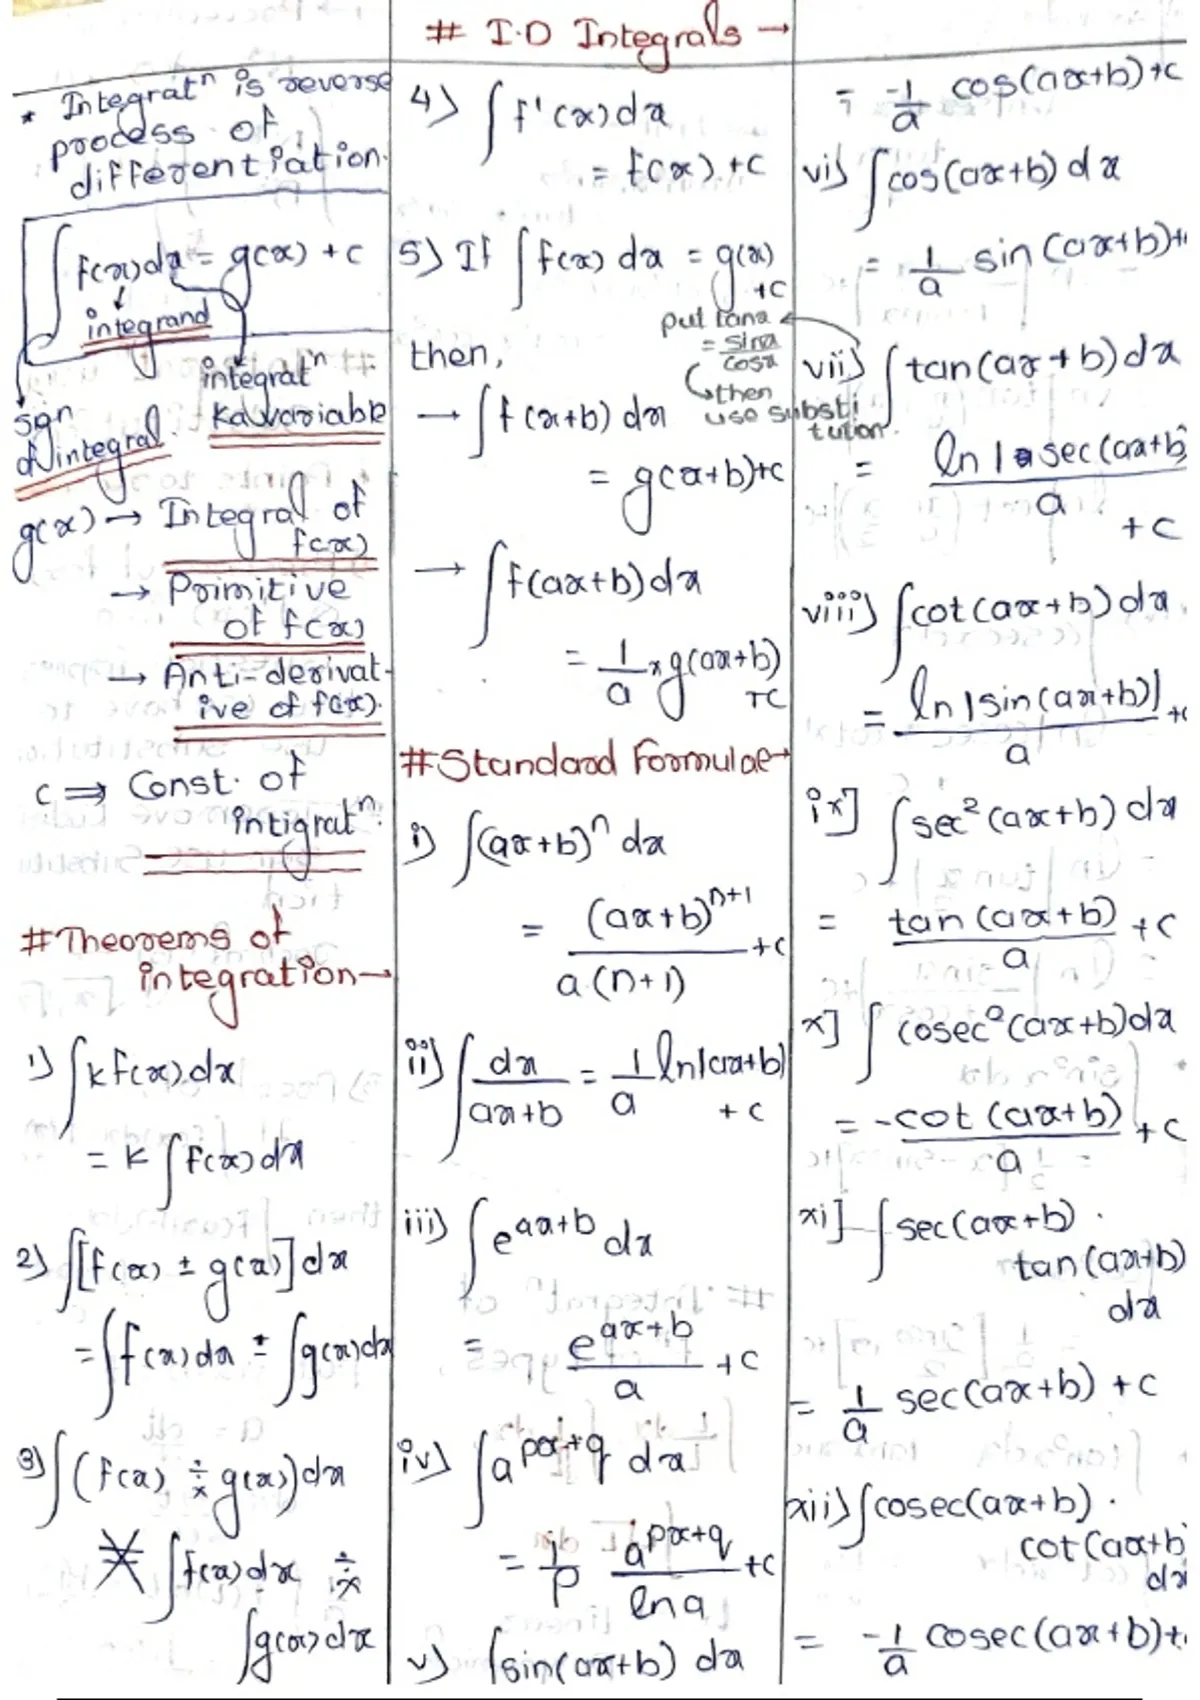 # I.D Integrals →
* Integratⁿ is reverse
process of
differentiation.
∫ f(x)dx = g(x) + c
↓
integrand
integratⁿ
ka variable
sign
of integral.
g(x) → Integral of
f(x)
→ Primitive
of f(x)
→ Anti-derivat-
ive of f(x).
c ⇒ Const. of
intigratⁿ.
# Theorems of
integration →
1) ∫ k f(x).dx
= k ∫ f(x) dx
2) ∫ [f(x) ± g(x)] dx
= ∫ f(x) dx ± ∫ g(x) dx
3) ∫ (f(x) ÷× g(x)) dx
≠ ∫ f(x) dx ÷×
∫ g(x) dx
4) ∫ f'(x) dx
= f(x) + c
5) If ∫ f(x) dx = g(x)
+c
then,
→ ∫ f(x+b) dx
= g(x+b)+c
→ ∫ f(ax+b) dx
= 1/a × g(ax+b)
+c
# Standard Formulae →
i) ∫ (ax+b)ⁿ dx
= (ax+b)ⁿ⁺¹ / a.(n+1) +c
ii) ∫ dx / ax+b = 1/a ln|(ax+b)|
+ c
iii) ∫ e^(ax+b) dx
= e^(ax+b) / a + c
iv) ∫ a^(px+q) dx
= 1/p a^(px+q) / ln a + c
v) ∫ sin(ax+b) dx
= -1/a cos(ax+b)+c
vi) ∫ cos(ax+b) dx
= 1/a sin(ax+b)+
put tanx
= sinx / cosx
then
use substi
tution.
vii) ∫ tan(ax+b) dx
= ln |sec(ax+b) / a
+ c
viii) ∫ cot(ax+b) dx
= ln |sin(ax+b)| / a +c
ix] ∫ sec² (ax+b) dx
= tan (ax+b) / a + c
x] ∫ cosec² (ax+b) dx
= -cot (ax+b) / a + c
xi] ∫ sec(ax+b) .
tan(ax+b)
dx
= 1/a sec(ax+b) + c
xii) ∫ cosec(ax+b) .
cot(ax+b
dx
= -1/a cosec(ax+b)+